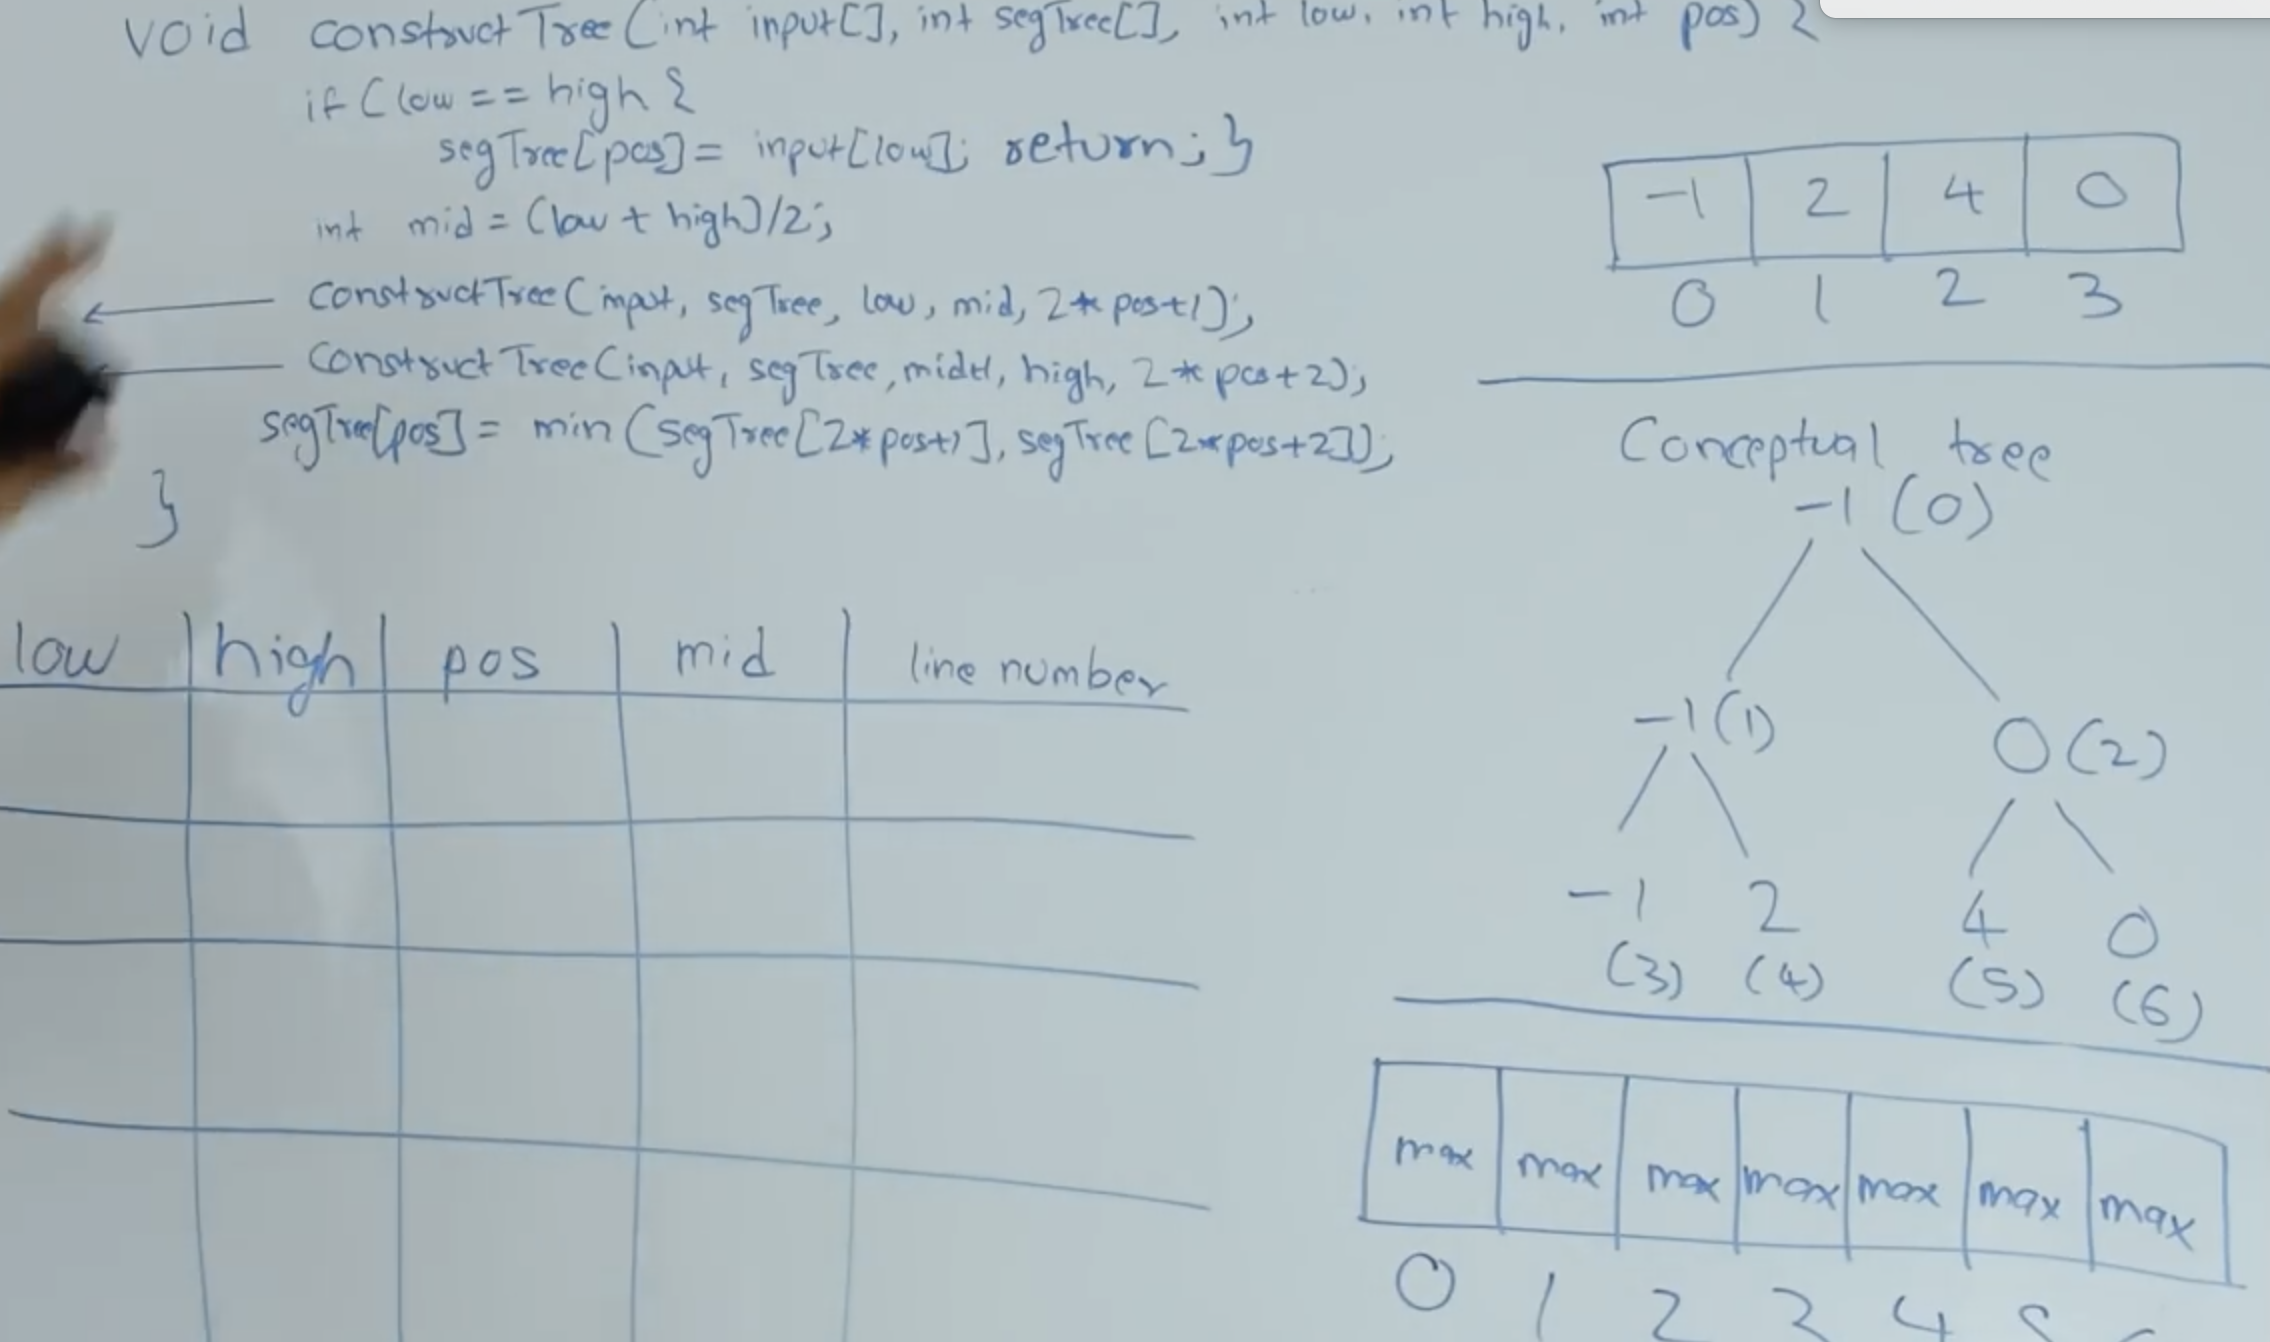 void constructTree (int input[], int segTree[], int low, int high, int pos) {
if ( low == high {
segTree[pos] = input[low]; return; }
int mid = (low + high)/2;
constructTree (input, segTree, low, mid, 2*pos+1);
constructTree (input, segTree, mid+1, high, 2*pos+2);
segTree[pos] = min (segTree[2*pos+1], segTree[2*pos+2]);
}
low high pos mid line number
-1 2 4 0
0 1 2 3
Conceptual tree
-1 (0)
-1 (1) 0 (2)
-1 2 4 0
(3) (4) (5) (6)
max max max max max max max
0 1 2 3 4